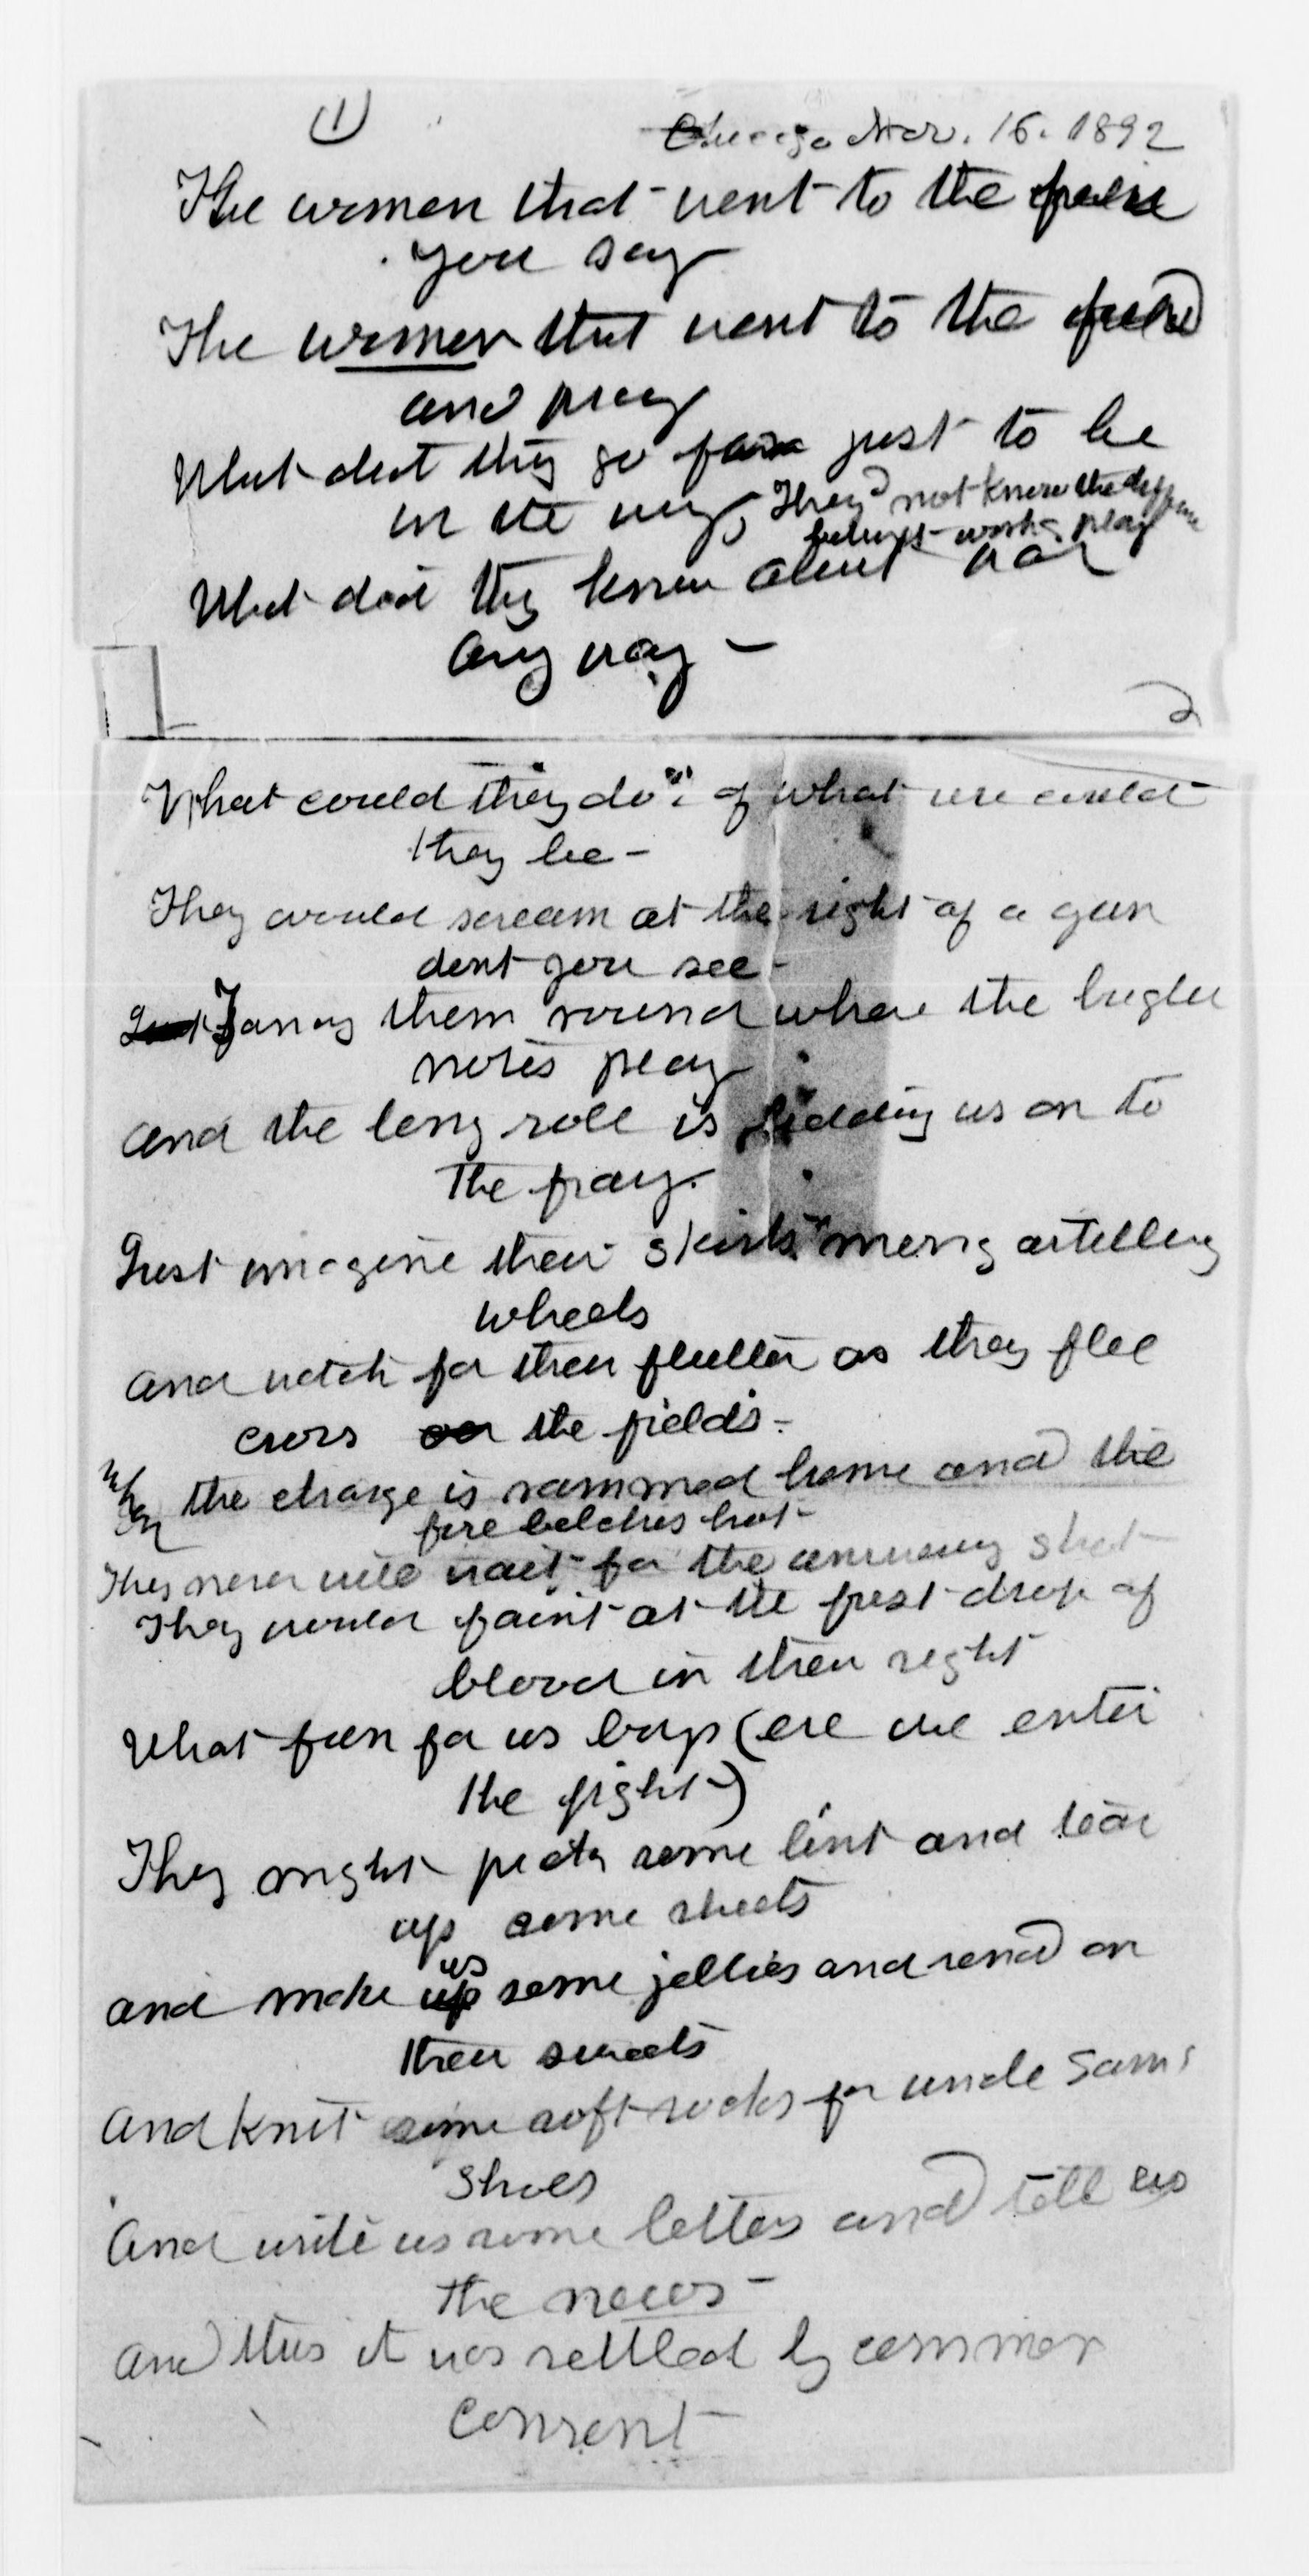 (1)
Chicago Nov. 16. 1892
The women that went to the field
you say
The women that went to the field
and pray
What did they go for just to be
in the way, They'd not know the difference
betwixt work & play
What did they know about war
any way —
2
What could they do? of what use could
they be —
They would scream at the sight of a gun
dont you see —
Just Fancy them round where the bugle
notes play
and the long roll is bidding us on to
the fray.
Just imagine their skirts "mong artillery
wheels
and watch for their flutter as they flee
cross the fields —
When the charge is rammed home and the
fire belches hot —
They never will wait for the answering shot
They would faint at the first drop of
blood in their sight
What fun for us boys (ere we enter
the fight)
They might pick some lint and tear
up some sheets
us
and make up some jellies and send on
their sweets
And knit some soft socks for uncle Sam's
Shoes
And write us some letters and tell us
the news —
and thus it was settled by common
consent